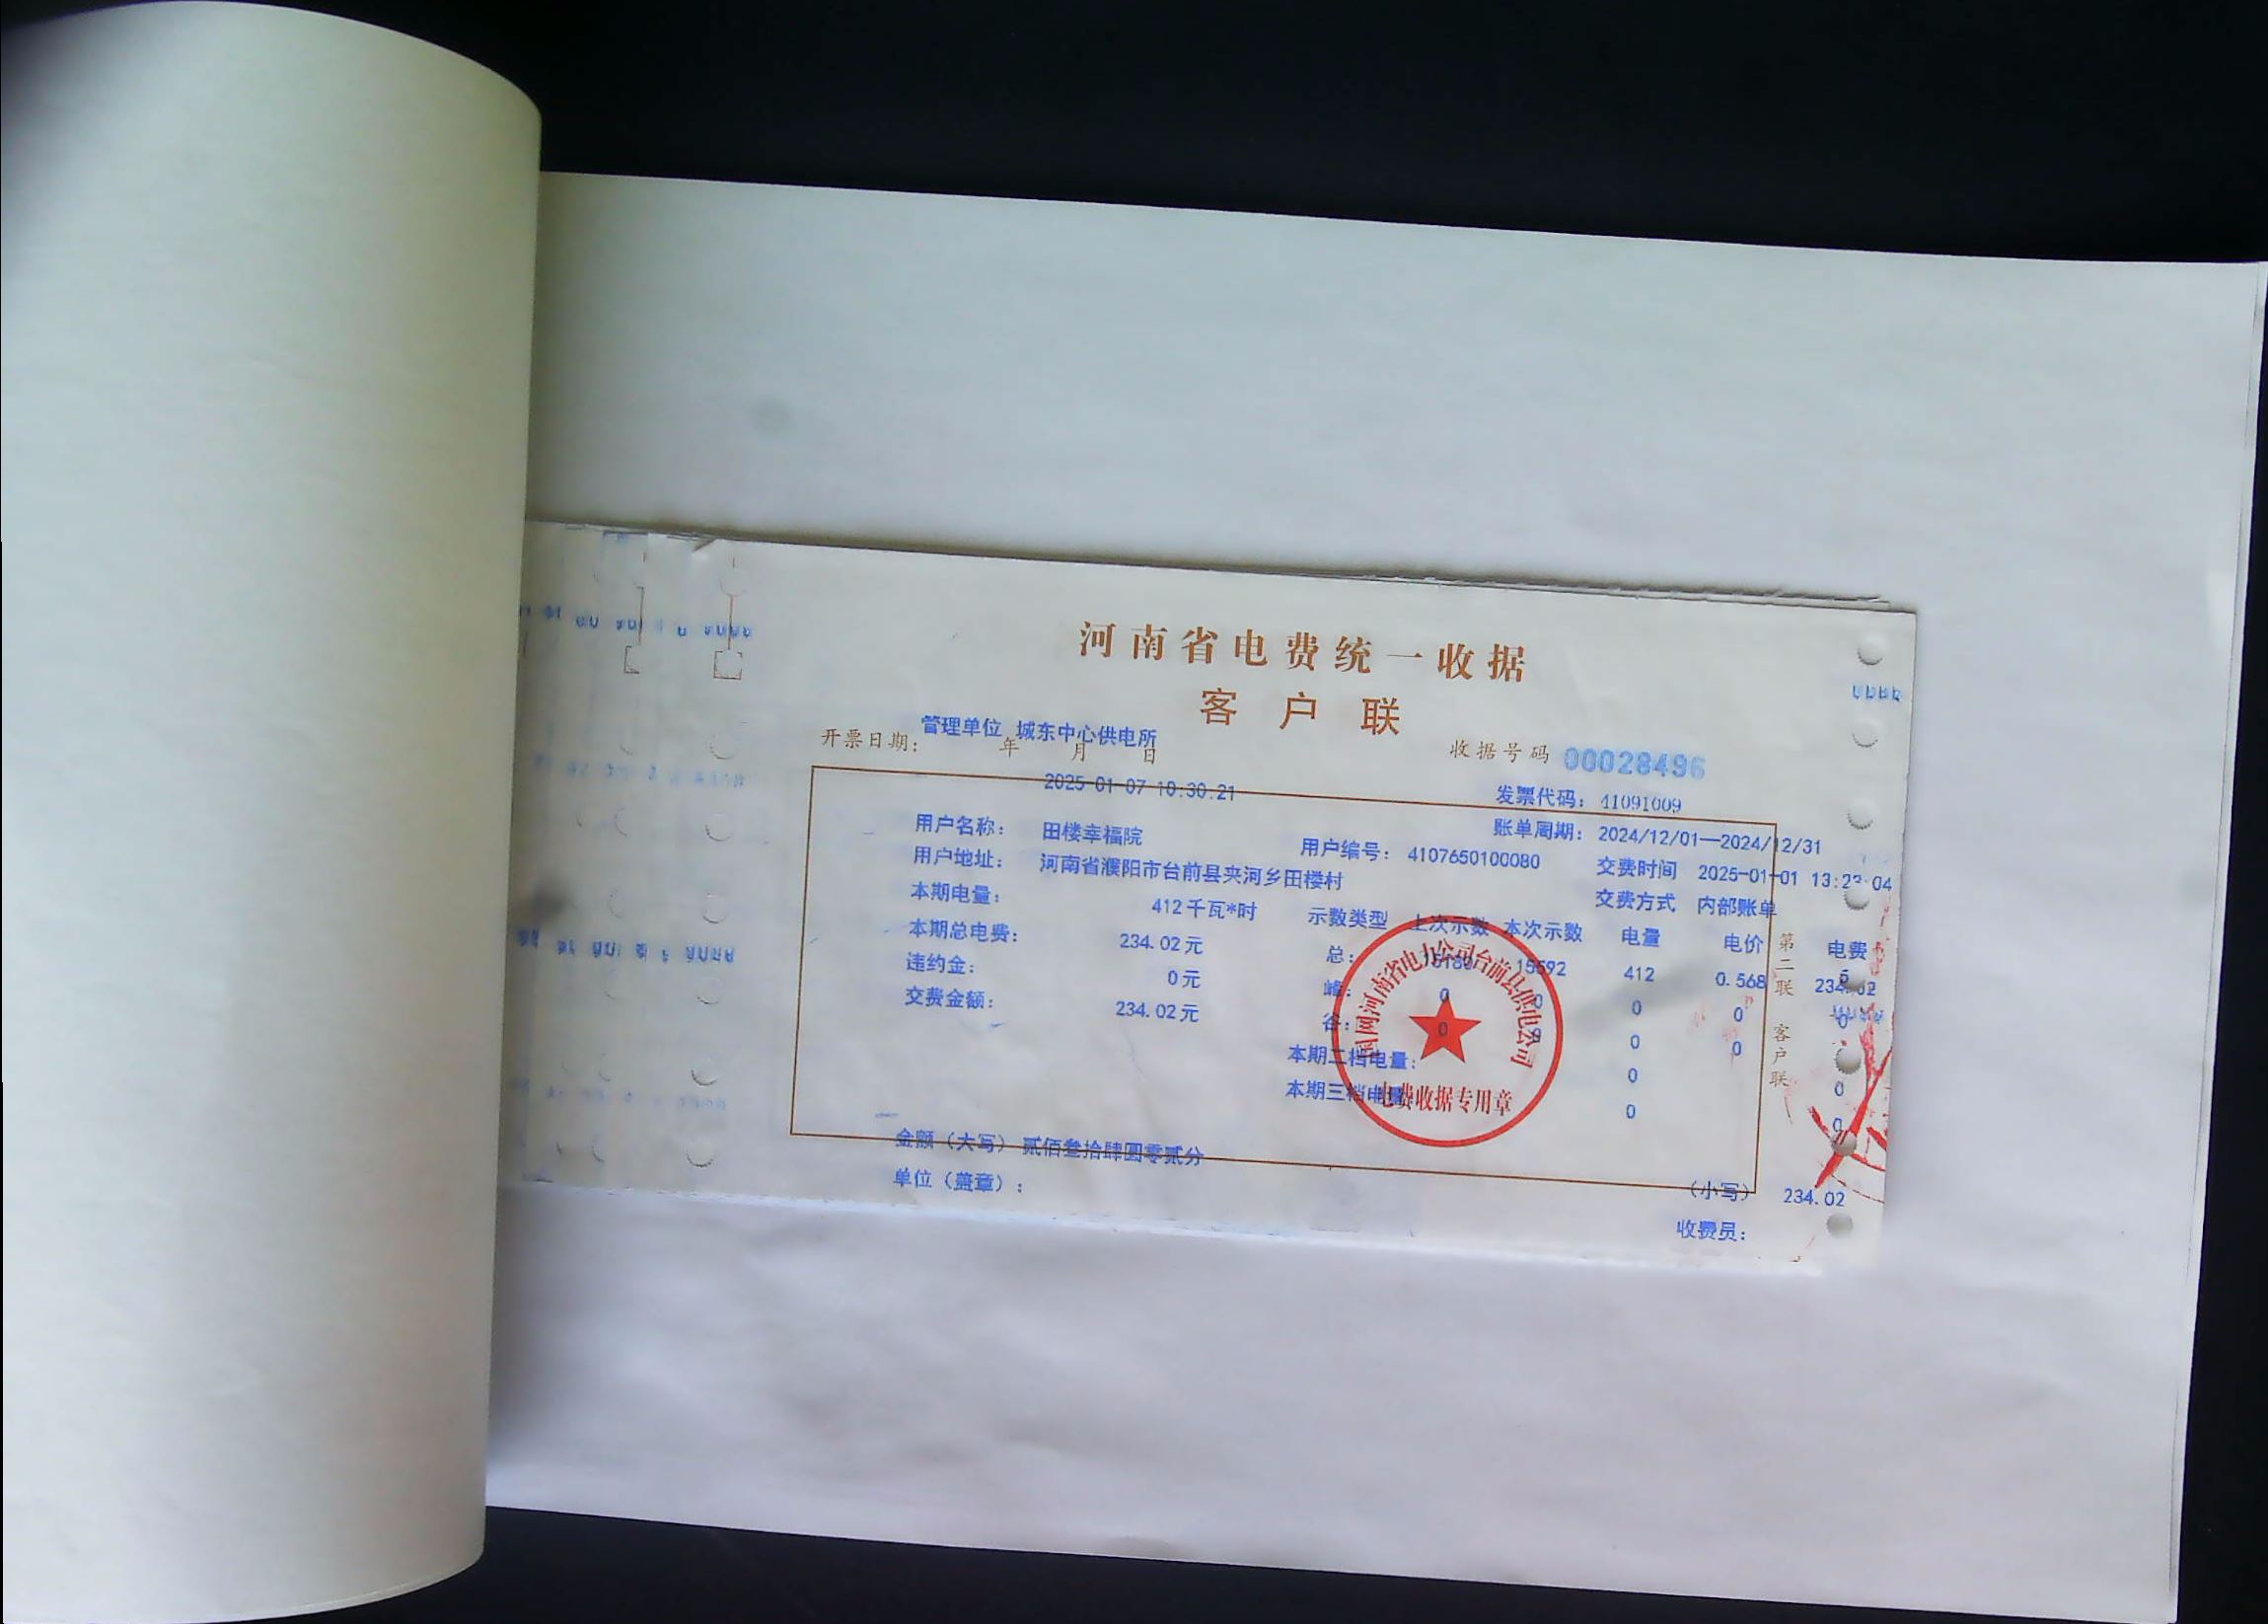 河南省电费统一收据
客户联
管理单位 城东中心供电所
开票日期： 年 月 日
收据号码 00028496
2025-01-07 10:30.21
发票代码：41091009
账单周期：2024/12/01—2024/12/31
用户名称：田楼幸福院
用户编号：4107650100080
交费时间 2025-01-01 13:23:04
用户地址：河南省濮阳市台前县夹河乡田楼村
交费方式 内部账单
本期电量：412千瓦*时
示数类型 上次示数 本次示数 电量 电价 电费
本期总电费：234.02元
总： 15180 15592 412 0.568 234.02
违约金：0元
峰：0 0 0 0 0
交费金额：234.02元
谷：0 0 0 0 0
本期二档电量：0 0
本期三档电量 0 0
国网河南省电力公司台前县供电公司
电费收据专用章
第二联 客户联
金额（大写）贰佰叁拾肆圆零贰分
（小写）234.02
单位（盖章）：
收费员：